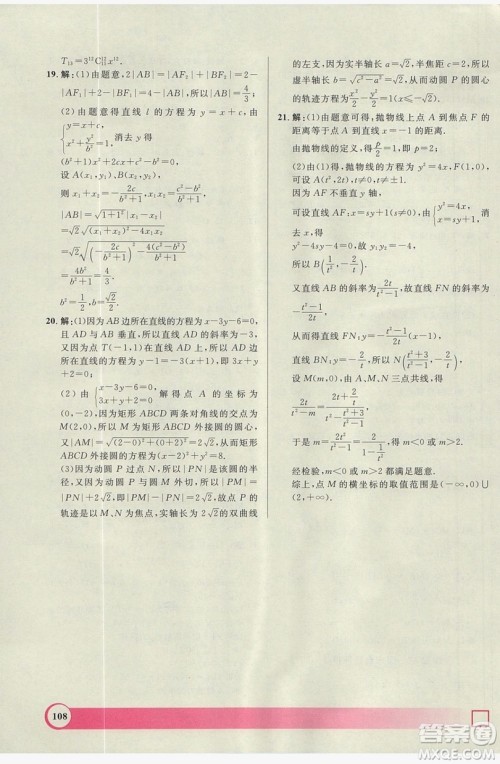 T₁₃=3¹²C|||x¹².
19. 解:(1)由题意, 2|AB|=|AF₂|+|BF₂|=2-
|AF₁|+2-|BF₁|=4-|AB|,所以|AB|=4/3;
(2)由题意得直线 l 的方程为 y=x+c,由
{y=x+c, x²+y²/b²=1, 消去 y 得
(b²+1)x²+2cx+c²-b²=0,
设 A(x₁,y₁),B(x₂,y₂),
则 x₁+x₂=-2c/(b²+1),x₁x₂=(c²-b²)/(b²+1),
|AB|=√(1+1²)|x₁-x₂|
=√2√((x₁+x₂)²-4x₁x₂)
=√2√((-2c/(b²+1))²-4(c²-b²)/(b²+1))
=4b²/(b²+1)=4/3,
b²=1/2,b=√2/2.
20. 解:(1)因为 AB 边所在直线的方程为 x-3y-6=0,
且 AD 与 AB 垂直,所以直线 AD 的斜率为-3.
又因为点 T(-1,1)在直线 AD 上,所以 AD
边所在直线的方程为 y-1=-3(x+1),即 3x+y
+2=0;
(2)由{x-3y-6=0, 3x+y+2=0 解得点 A 的坐标为
(0,-2),因为矩形 ABCD 两条对角线的交点为
M(2,0),所以 M 为矩形 ABCD 外接圆的圆心.
又|AM|=√((2-0)²+(0+2)²)=2√2,从而矩形
ABCD 外接圆的方程为(x-2)²+y²=8;
(3)因为动圆 P 过点 N,所以|PN|是该圆的半径,
又因为动圆 P 与圆 M 外切,所以|PM|=|PN|
+2√2,即|PM|-|PN|=2√2,故点 P 的
轨迹是以 M、N 为焦点,实轴长为 2√2的双曲线
的左支,因为实半轴长 a=√2,半焦距 c=2,所以
虚半轴长 b=√(c²-a²)=√2,从而动圆 P 的圆心
的轨迹方程为x²/2-y²/2=1(x≤-√2).
21. 解:(1)由题意可得,抛物线上点 A 到焦点 F 的
距离等于点 A 到直线 x=-1 的距离.
由抛物线的定义,得p/2=1,即 p=2.
(2)由(1)得,抛物线的方程为 y²=4x,F(1,0),
可设 A(t²,2t),t≠0,t≠±1.
因为 AF 不垂直 y 轴,
可设直线 AF:x=sy+1(s≠0),由{y²=4x, x=sy+1消去 x 得
y²-4sy-4=0,故 y₁y₂=-4,
所以 B(1/t²,-2/t).
又直线 AB 的斜率为2t/(t²-1),故直线 FN 的斜率为
-(t²-1)/2t,
从而得直线 FN:y=-(t²-1)/2t(x-1),
直线 BN:y=-2/t,所以 N((t²+3)/(t²-1),-2/t).
设 M(m,0),由 A、M、N 三点共线得
2t/(t²-m)=(2t+2/t)/(t²-(t²+3)/(t²-1)),
于是 m=2t²/(t²-1)=2+2/(t²-1),所以 m<0 或 m>2.
经检验,m<0 或 m>2 都满足题意.
综上,点 M 的横坐标的取值范围是(-∞,0)∪
(2,+∞).
108
答案圈
MXQE.COM